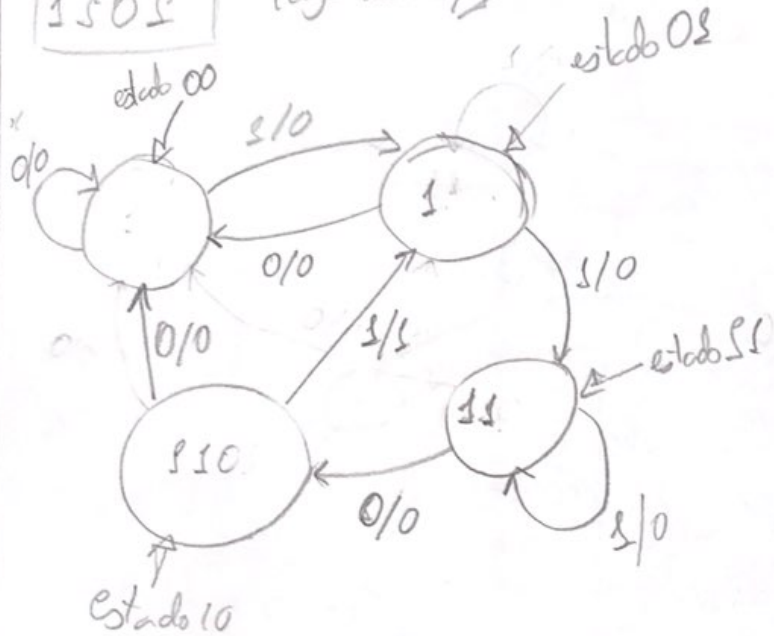 1101
estado 00
estado 01
0/0
1/0
1
0/0
1/0
0/0
1/1
estado 11
110
11
0/0
1/0
Estado 10